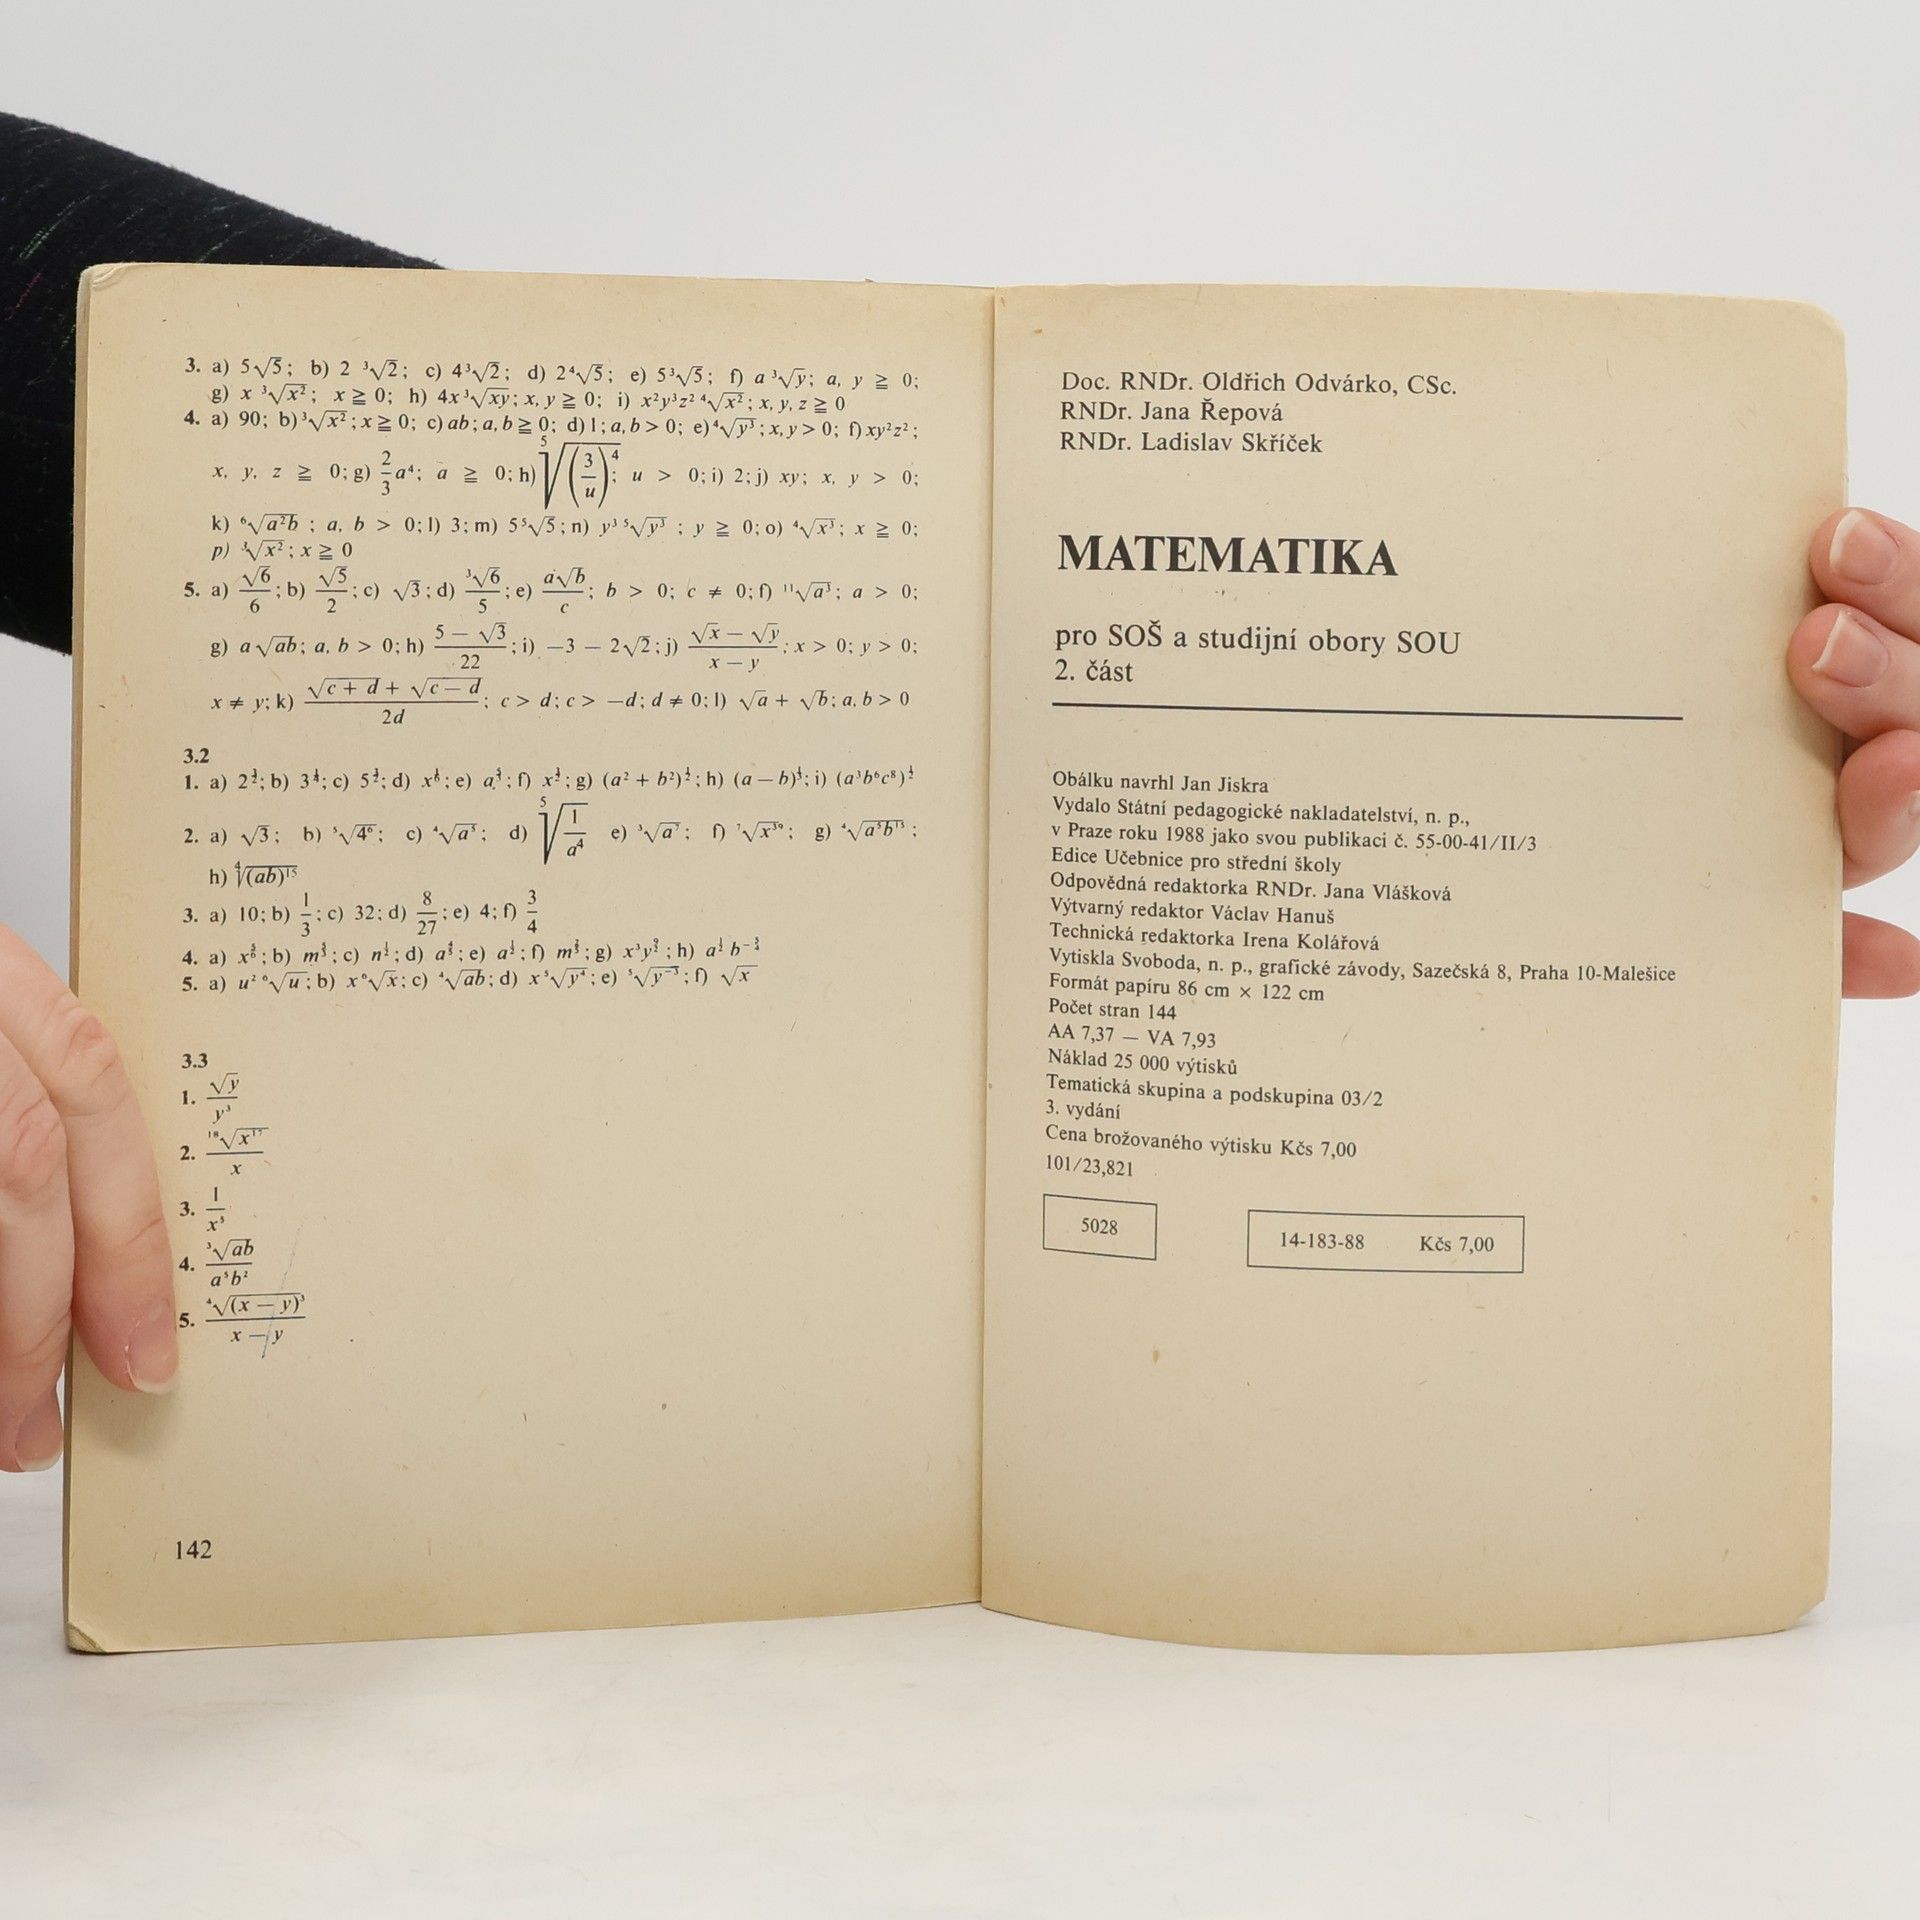 3. a) 5√5; b) 2 ³√2; c) 4³√2; d) 2⁴√5; e) 5³√5; f) a ³√y; a, y ≧ 0;
g) x ³√x²; x ≧ 0; h) 4x³√xy; x, y ≧ 0; i) x²y³z² ⁴√x²; x, y, z ≧ 0
4. a) 90; b) ³√x²; x ≧ 0; c) ab; a, b ≧ 0; d) 1; a, b > 0; e) ⁴√y³; x, y > 0; f) xy²z²;
x, y, z ≧ 0; g) 2/3 a⁴; a ≧ 0; h) ⁵√(3/u)⁴; u > 0; i) 2; j) xy; x, y > 0;
k) ⁶√a²b; a, b > 0; l) 3; m) 5⁵√5; n) y³ ⁵√y³; y ≧ 0; o) ⁴√x³; x ≧ 0;
p) ³√x²; x ≧ 0
5. a) √6/6; b) √5/2; c) √3; d) ³√6/5; e) a√b/c; b > 0; c ≠ 0; f) ¹¹√a³; a > 0;
g) a√ab; a, b > 0; h) (5 − √3)/22; i) −3 − 2√2; j) (√x − √y)/(x − y); x > 0; y > 0;
x ≠ y; k) (√(c + d) + √(c − d))/2d; c > d; c > −d; d ≠ 0; l) √a + √b; a, b > 0
3.2
1. a) b) c) d) e) f) g) h) i)
2. a) √3; b) ⁵√4⁶; c) ⁴√a⁵; d) ⁵√(1/a⁴) e) ³√a⁷; f) g) ⁴√a⁵b¹⁵;
h) ⁴√(ab)¹⁵
3. a) 10; b) 1/3; c) 32; d) 8/27; e) 4; f) 3/4
4. a) b) c) d) e) f) g) h)
5. a) u² ⁶√u; b) x⁶√x; c) ⁴√ab; d) x⁵√y⁴; e) ⁵√y⁻³; f) √x
3.3
1. √y/y³
2. ¹⁸√x¹⁷/x
3. 1/x⁵
4. ³√ab/a⁵b²
5. ⁴√(x − y)³/(x − y)
142
Doc. RNDr. Oldřich Odvárko, CSc.
RNDr. Jana Řepová
RNDr. Ladislav Skříček
MATEMATIKA
pro SOŠ a studijní obory SOU
2. část
Obálku navrhl Jan Jiskra
Vydalo Státní pedagogické nakladatelství, n. p.,
v Praze roku 1988 jako svou publikaci č. 55-00-41/II/3
Edice Učebnice pro střední školy
Odpovědná redaktorka RNDr. Jana Vlášková
Výtvarný redaktor Václav Hanuš
Technická redaktorka Irena Kolářová
Vytiskla Svoboda, n. p., grafické závody, Sazečská 8, Praha 10-Malešice
Formát papíru 86 cm × 122 cm
Počet stran 144
AA 7,37 — VA 7,93
Náklad 25 000 výtisků
Tematická skupina a podskupina 03/2
3. vydání
Cena brožovaného výtisku Kčs 7,00
101/23,821
5028
14-183-88 Kčs 7,00